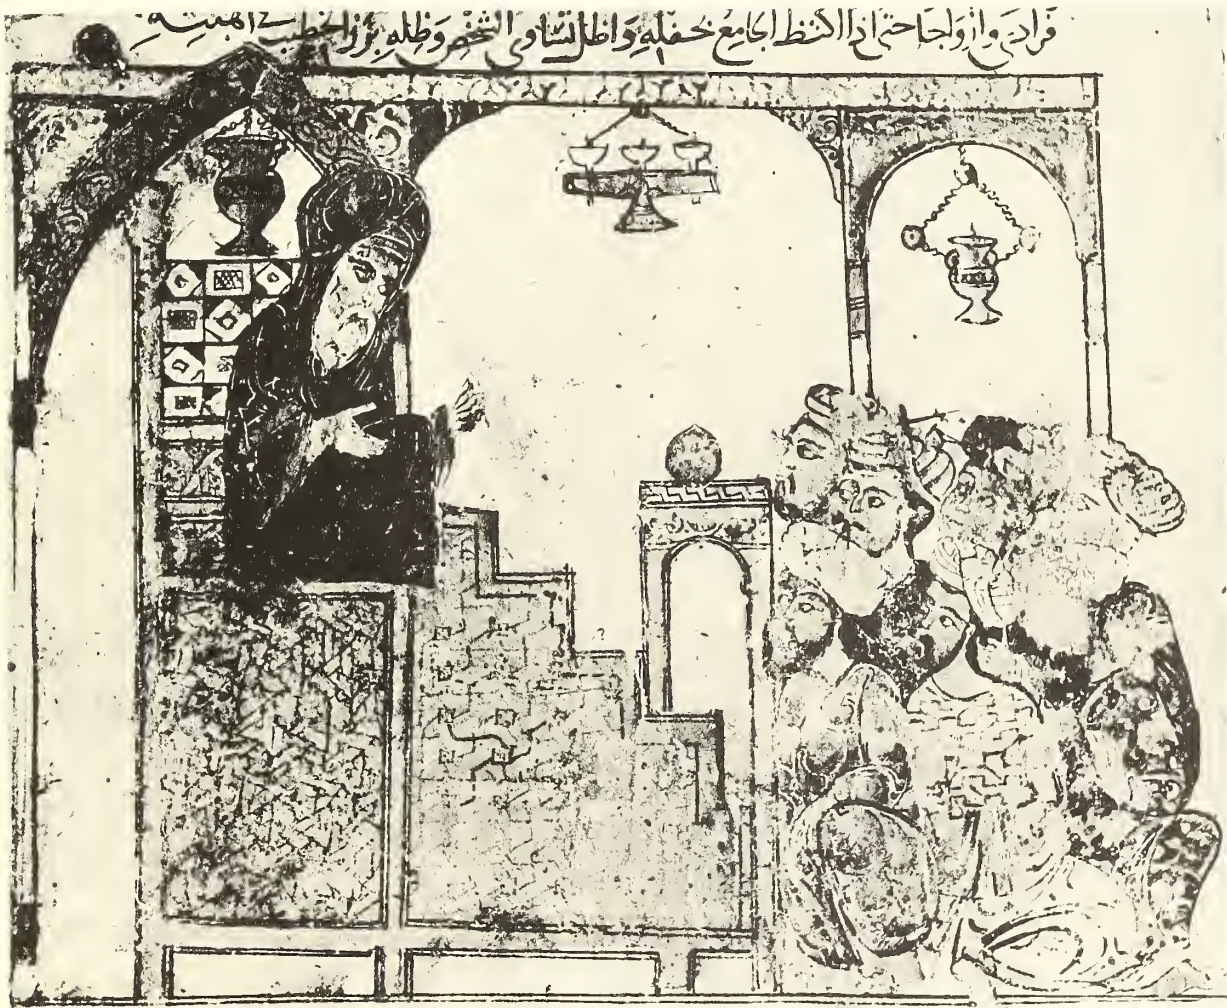 فرادى وازواجا حتى اذا اكتظ الجامع بحفله واظل تساوى الشخص وظله برز الخطيب فى اهبته